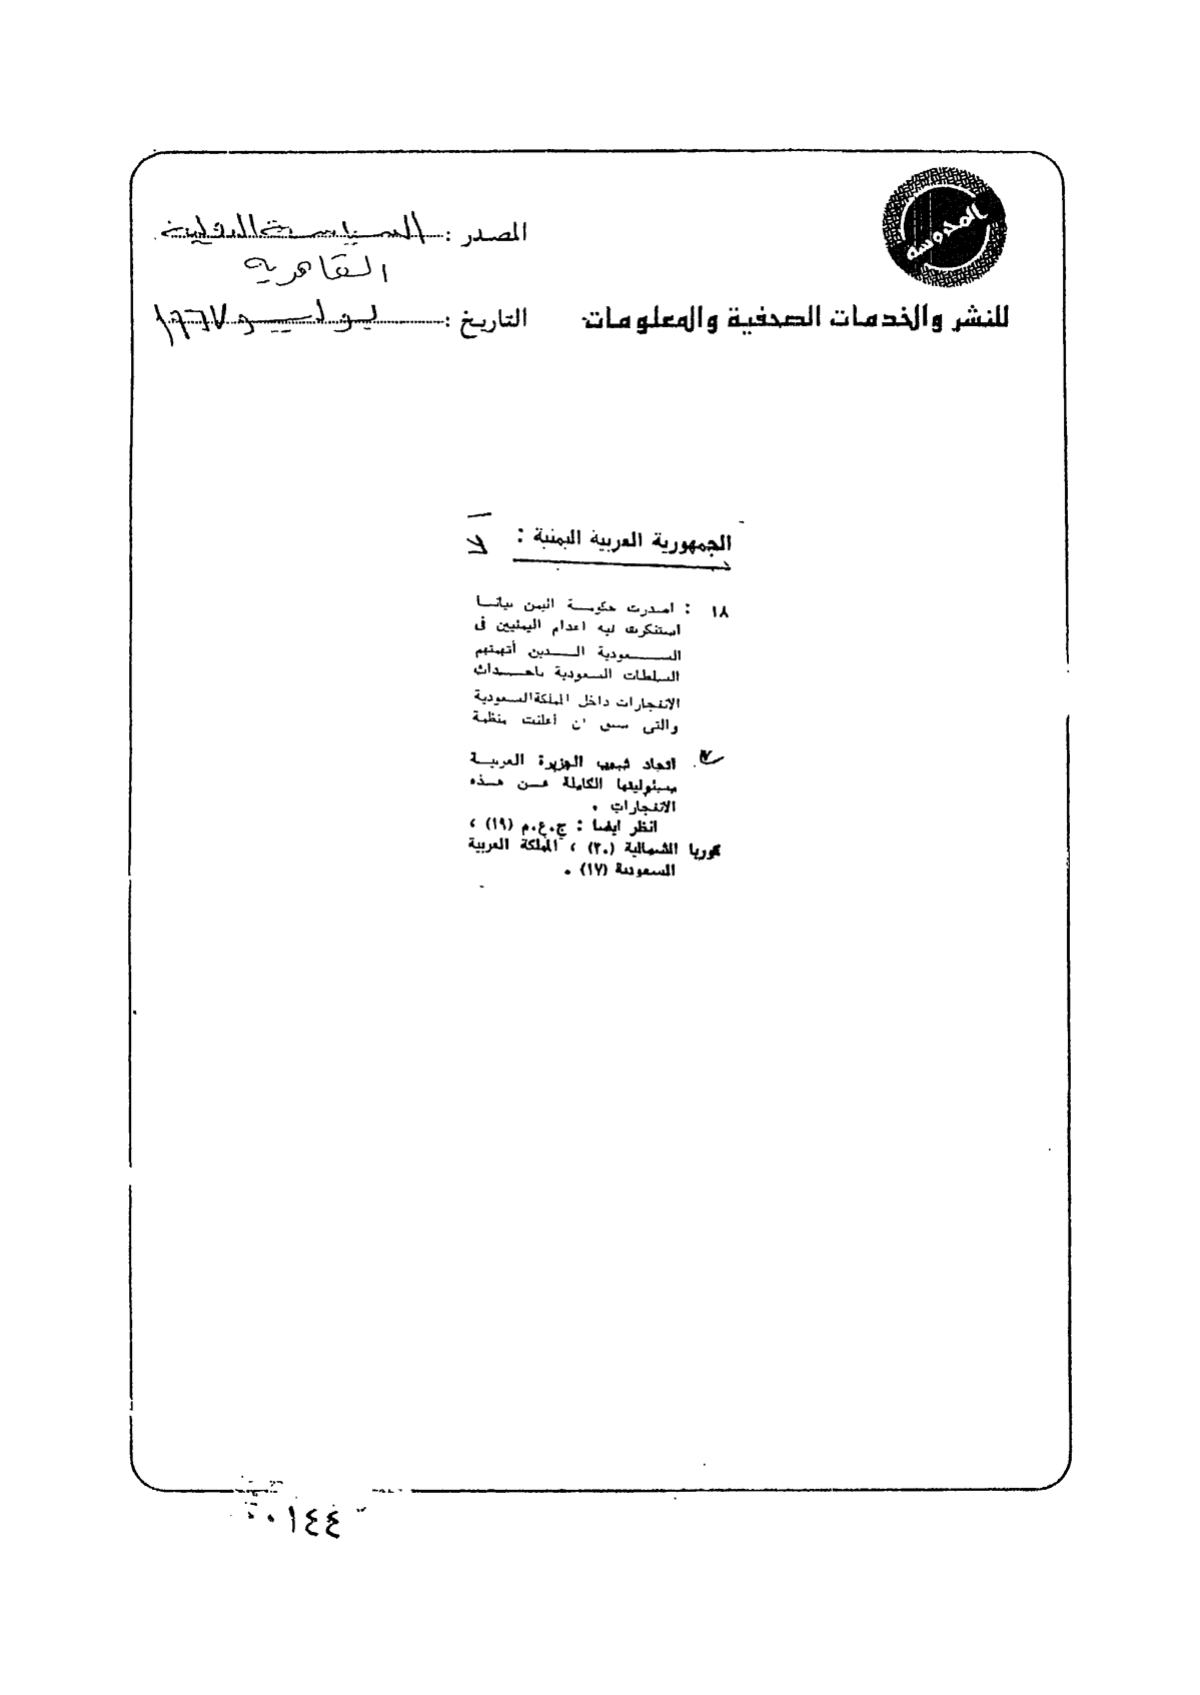 المحروسة
للنشر والخدمات الصحفية والمعلومات
المصدر : السياسية الدولية
القاهرية
التاريخ : يوليو ١٩٦٧
الجمهورية العربية اليمنية :
١٨ : اصدرت حكومة اليمن بيانا
استنكرت فيه اعدام اليمنيين فى
السعودية الذين أتهمتهم
السلطات السعودية باحداث
الانفجارات داخل المملكة السعودية
والتى سبق ان أعلنت منظمة
اتحاد شعوب الجزيرة العربية
مسئوليتها الكاملة عن هذه
الانفجارات .
انظر ايضا : ج.ع.م (١٩) ،
كوريا الشمالية (٢٠) ، المملكة العربية
السعودية (١٧) .
٠١٤٤